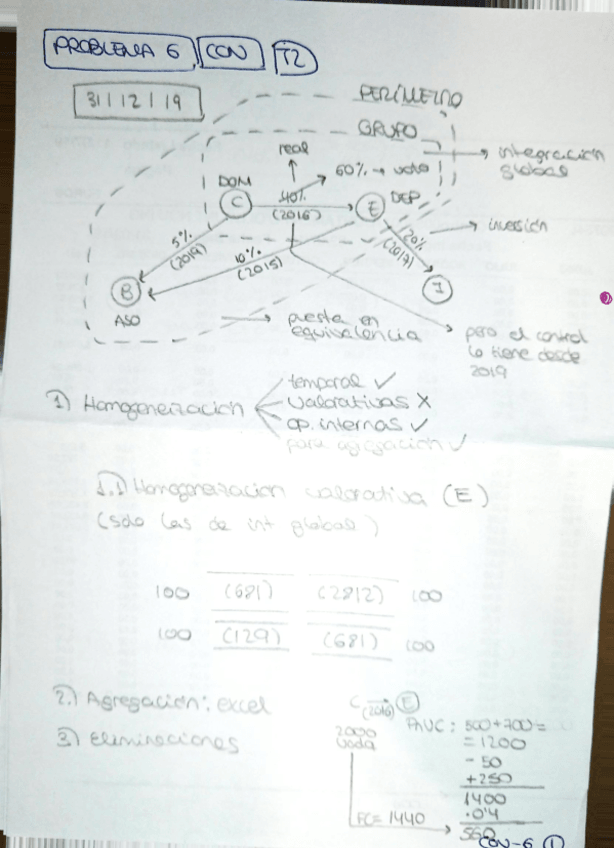 PROBLEMA 6 CON T2
31 | 12 | 19
PERÍMETRO
GRUPO
integración global
real
60% → voto
DOM
C
40%
(2016)
DEP
E
5%
(2019)
10%
(2015)
20%
(2017)
inversión
B
ASO
puesta en equivalencia
pero el control lo tiene desde 2019
1) Homogeneización
temporal ✓
valorativas X
op. internas ✓
para agregación ✓
1.1 Homogeneización valorativa (E)
(Solo las de int global)
100 (681) (2812) 100
100 (129) (681) 100
2.) Agregación: excel
3) Eliminaciones
C (2016) E
2000
PNVC: 500+700=
=1200
- 50
+250
1400
·0'4
560
FC= 1440
CON-6 1